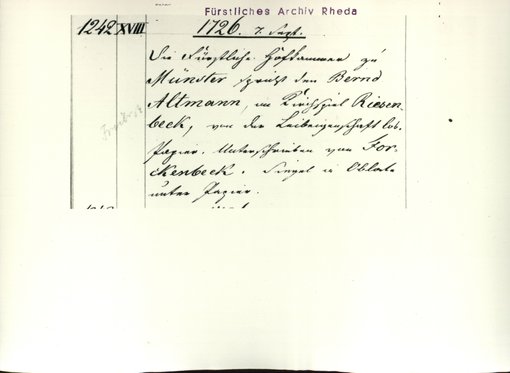 Fürstliches Archiv Rheda
1242 XVIII 1726. 7. Sept.
Die Fürstliche Hofkammer zu
Münster spricht den Bernd
Altmann, im Kirchspiel Riesen-
beck, von der Leibeigenschaft los.
Papier. Unterschrieben von For-
ckenbeck. Siegel in Oblate
unter Papier.